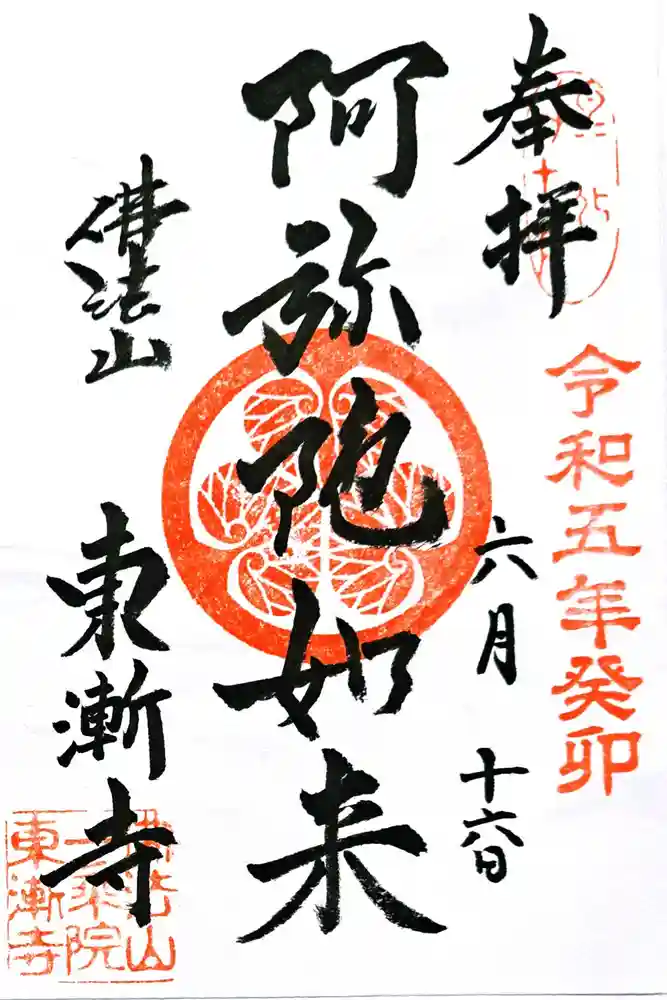 奉拝
令和五年癸卯
六月十六日
阿弥陀如来
佛法山
東漸寺
佛法山
一乗院
東漸寺